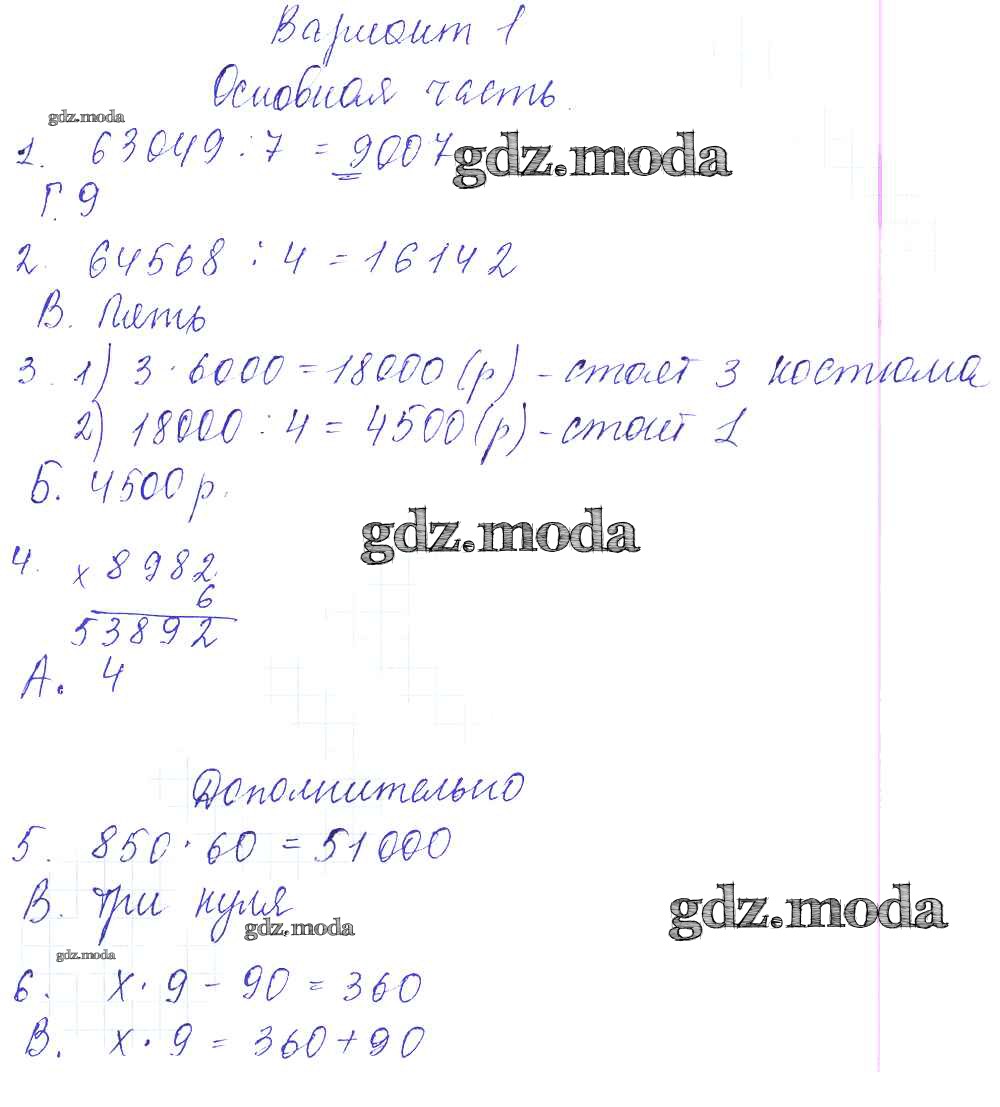 Вариант 1
Основная часть
gdz.moda
1. 63049 : 7 = 9007
gdz.moda
Г. 9
2. 64568 : 4 = 16142
В. Пять
3. 1) 3 · 6000 = 18000 (р) - стоят 3 костюма
2) 18000 : 4 = 4500 (р) - стоит 1
Б. 4500 р.
gdz.moda
4. x 8982
6
53892
А. 4
Дополнительно
5. 850 · 60 = 51000
В. три нуля
gdz.moda
gdz.moda
gdz.moda
6. x · 9 - 90 = 360
В. x · 9 = 360 + 90